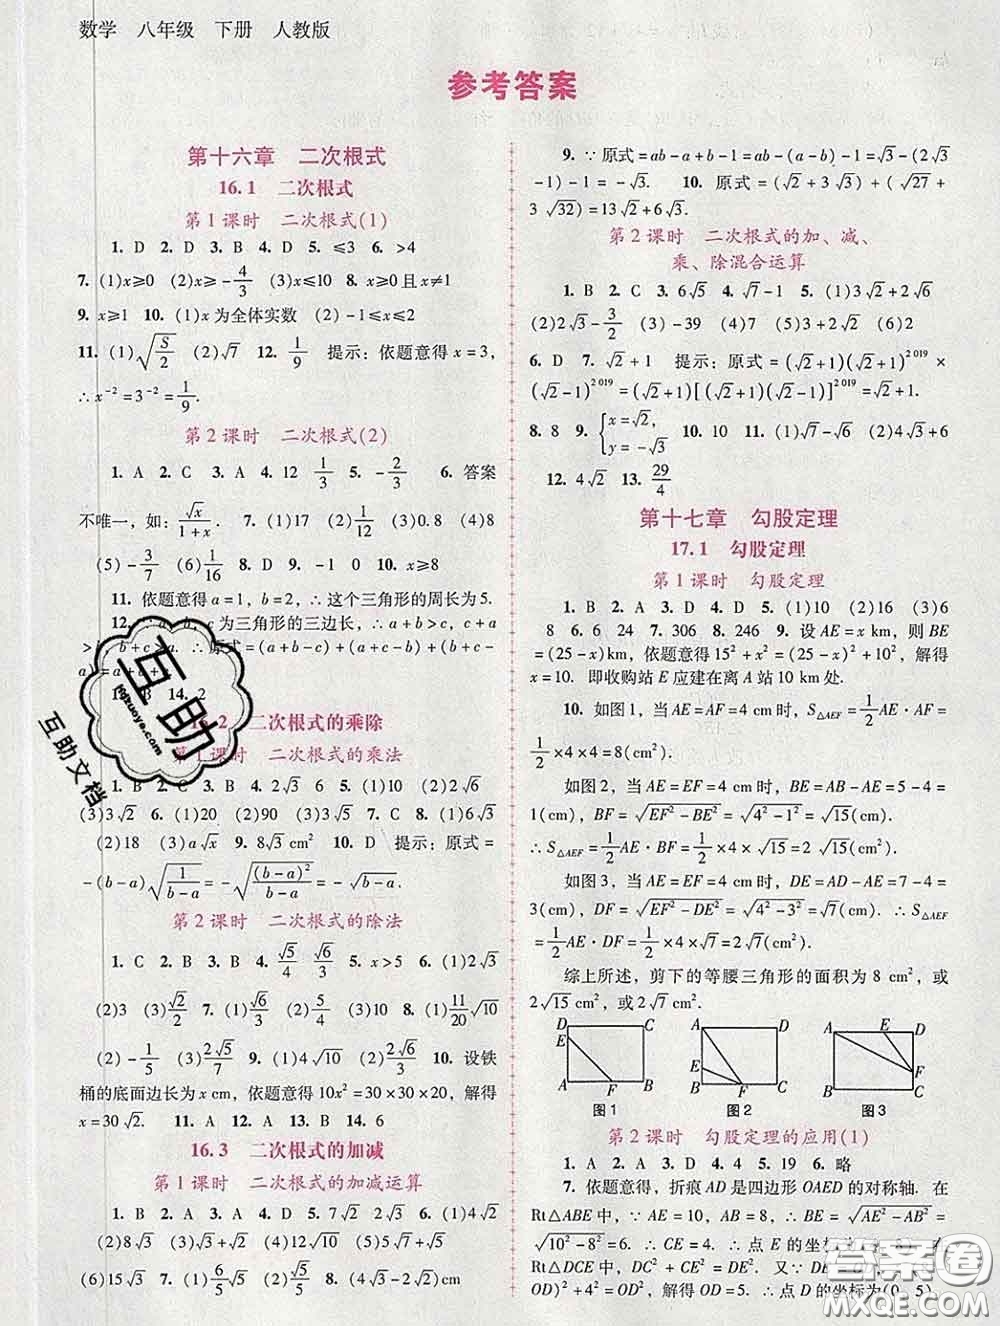 数学 八年级 下册 人教版
参考答案
第十六章 二次根式
16.1 二次根式
第1课时 二次根式(1)
1. D 2. D 3. B 4. D 5. ≤3 6. >4
7. (1)x≥0 (2)x≥-4/3 (3)x≤10 8. x≥0且x≠1
9. x≥1 10. (1)x为全体实数 (2)-1≤x≤2
11. (1)√(S/2) (2)√7 12. 1/9 提示：依题意得x=3,
∴x⁻²=3⁻²=1/9.
第2课时 二次根式(2)
1. A 2. C 3. A 4. 12 1/3 5. -2/3 6. 答案
不唯一，如：√x/(1+x). 7. (1)17 (2)1/12 (3)0.8 (4)8
(5)-3/7 (6)1/16 8. D 9. -1 0 10. x≥8
11. 依题意得a=1，b=2，∴这个三角形的周长为5.
12. c为三角形的三边长，∴a+b>c，c+a
=(a+b-c)+(b+c-
14. 2
16.2 二次根式的乘除
第1课时 二次根式的乘法
1. B 2. C 3. B 4. 2√3 6 5. (1)10 (2)2
(3)3√2 6. (1)20 (2)90 (3)2√3 7. C 8. (1)10
(2)18 (3)a√x 9. 8√3 cm² 10. D 提示：原式=
-(b-a)√(1/(b-a))=-√((b-a)²/(b-a))=-√(b-a).
第2课时 二次根式的除法
1. C 2. B 3. A 4. √5/4 √6/3 5. x>5 6. (1)2√3
(2)3 (3)√2/2 7. (1)√6/3 (2)5√3 8. (1)11/20√10
(2)-1/5 (3)2√5/7 9. (1)4√10 (2)2√6/3 10. 设铁
桶的底面边长为x cm，依题意得10x²=30×30×20，解得
x=30√2. 11. A 12. A 13. B 14. 6
16.3 二次根式的加减
第1课时 二次根式的加减运算
1. B 2. B 3. A 4. D 5. 7√2 2√3 6. (1)4√2
(2)8√3 (3)√2+√3 (4)12√3 (5)5√7+√5
(6)15√3 7. (1)6/5√5 (2)-√3 8. (4√3+2√2)cm
9. ∵原式=ab-a+b-1=ab-(a-b)-1=√3-(2√3
-1)-1=-√3. 10. 原式=(√2+3√3)+(√27+
3√32)=13√2+6√3.
第2课时 二次根式的加、减、
乘、除混合运算
1. B 2. C 3. 6√5 4. √7-1 5. (1)3√2+2√6
(2)2√3-3/2 (3)-39 (4)7 (5)3+2√2 (6)2
6. D 7. √2+1 提示：原式=(√2+1)(√2+1)²⁰¹⁹×
(√2-1)²⁰¹⁹=(√2+1)[(√2+1)(√2-1)]²⁰¹⁹=√2+1.
8. 8 9. {x=√2, y=-√3 10. 10 11. (1)√7-√6 (2)4√3+6
12. 4√2 13. 29/4
第十七章 勾股定理
17.1 勾股定理
第1课时 勾股定理
1. B 2. A 3. D 4. D 5. (1)10 (2)16 (3)6
8 6. 6 24 7. 306 8. 246 9. 设AE=x km，则BE
=(25-x)km，依题意得15²+x²=(25-x)²+10²，解得
x=10. 即收购站E应建在离A站10 km处.
10. 如图1，当AE=AF=4 cm时，S△AEF=1/2AE·AF=
1/2×4×4=8(cm²).
如图2，当AE=EF=4 cm时，BE=AB-AE=5-4=
1(cm)，BF=√(EF²-BE²)=√(4²-1²)=√15(cm).
∴S△AEF=1/2AE·BF=1/2×4×√15=2√15(cm²).
如图3，当AE=EF=4 cm时，DE=AD-AE=7-4=
3(cm)，DF=√(EF²-DE²)=√(4²-3²)=√7(cm). ∴S△AEF
=1/2AE·DF=1/2×4×√7=2√7(cm²).
综上所述，剪下的等腰三角形的面积为8 cm²，或
2√15 cm²，或2√7 cm².
D C E A F B 图1
A D E B F C 图2
A E D F B C 图3
第2课时 勾股定理的应用(1)
1. A 2. A 3. D 4. 4 5. 19 6. 略
7. 依题意得，折痕AD是四边形OAED的对称轴. 在
Rt△ABE中，∵AE=10，AB=8，∴BE=√(AE²-AB²)=
√(10²-8²)=6. ∴CE=4. ∴点E的坐标
Rt△DCE中，DC²+CE²=DE². 又∵DE=
OD)²+4²=OD²，解得OD=5. ∴点D的坐标为(0，5).
互助
hzzuoye.com
互助文档
答案圈
MXQE.COM